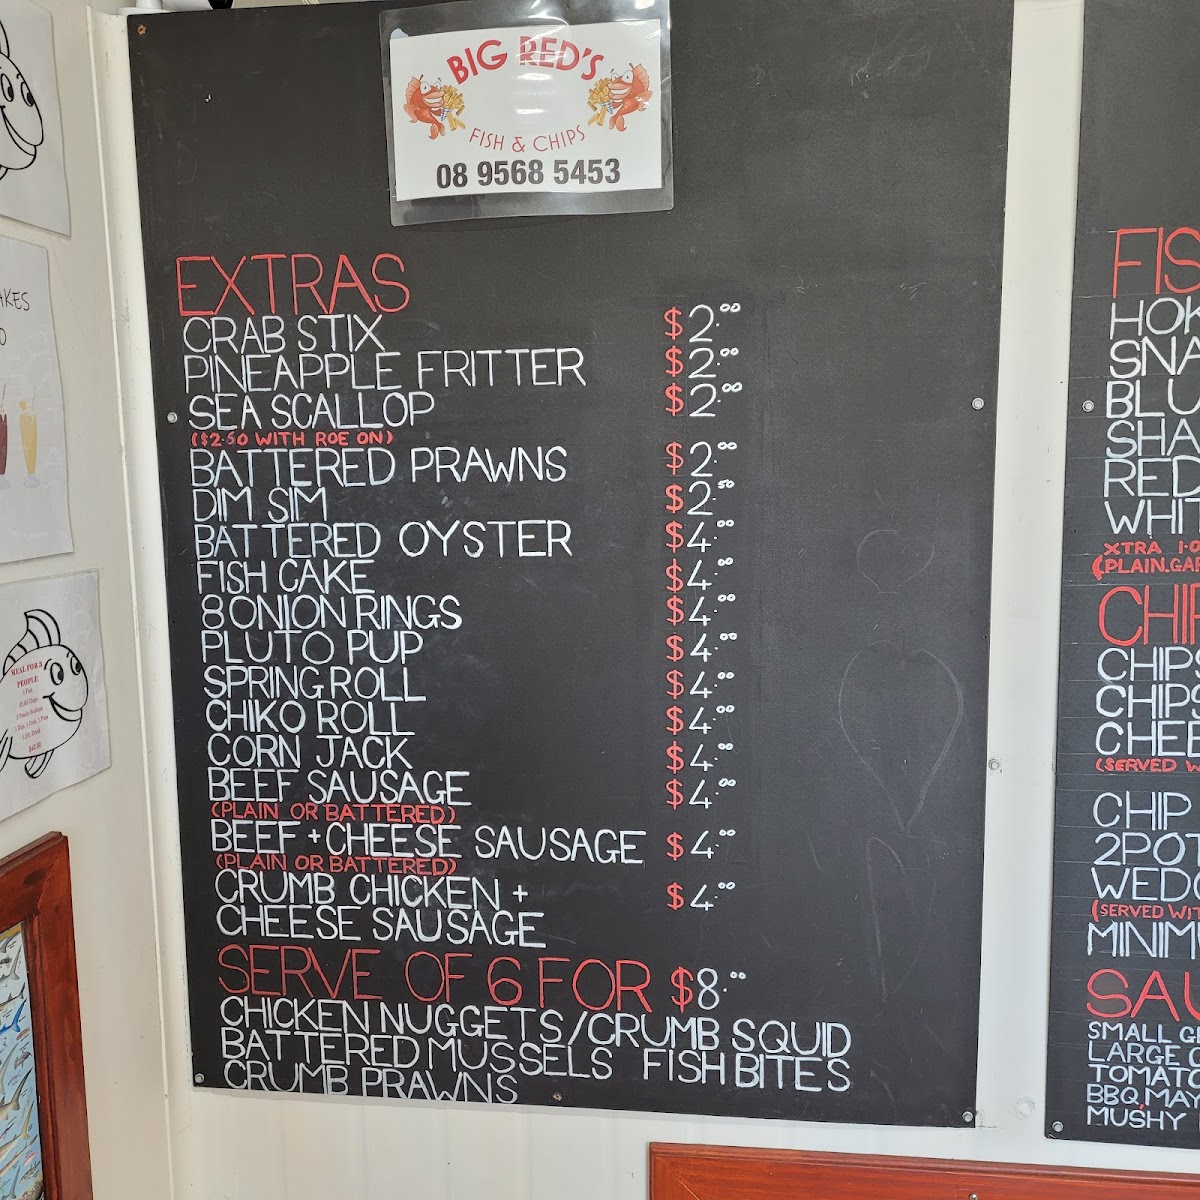 BIG RED'S
FISH & CHIPS
08 9568 5453
EXTRAS
CRAB STIX $2.00
PINEAPPLE FRITTER $2.00
SEA SCALLOP $2.00
($2.50 WITH ROE ON)
BATTERED PRAWNS $2.00
DIM SIM $2.50
BATTERED OYSTER $4.00
FISH CAKE $4.00
8 ONION RINGS $4.00
PLUTO PUP $4.00
SPRING ROLL $4.00
CHIKO ROLL $4.00
CORN JACK $4.00
BEEF SAUSAGE $4.00
(PLAIN OR BATTERED)
BEEF + CHEESE SAUSAGE $4.00
(PLAIN OR BATTERED)
CRUMB CHICKEN + $4.00
CHEESE SAUSAGE
SERVE OF 6 FOR $8.00
CHICKEN NUGGETS/CRUMB SQUID
BATTERED MUSSELS FISH BITES
CRUMB PRAWNS
MEAL FOR 3
PEOPLE
$40.00
FIS
HOK
SNA
BLU
SHA
RED
WHIT
XTRA 1.0
(PLAIN.GAR
CHIP
CHIPS
CHIPS
CHEE
(SERVED W
CHIP
2 POT
WEDG
(SERVED WIT
MINIM
SAU
SMALL G
LARGE G
TOMATO
BBQ MAY
MUSHY